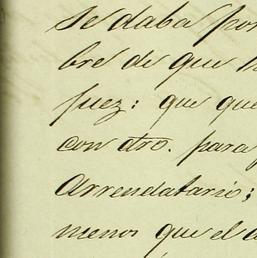 se daba por
bre de que
juez: que que
con dro. para
Arrendatario;
menos que el